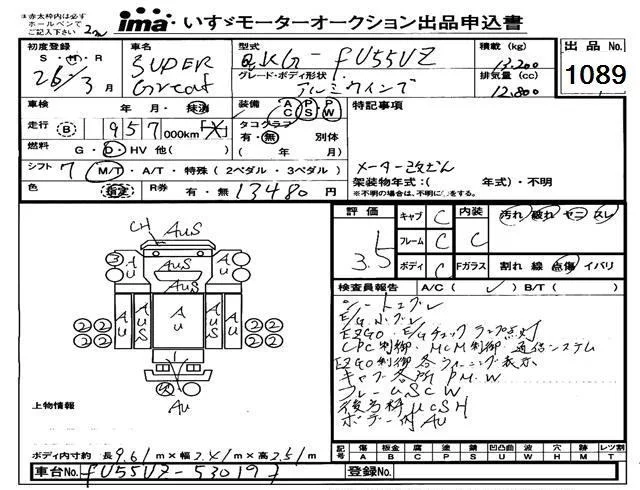 ※赤太枠内は必ず
ホールペンで
ご記入下さい
ima いすゞモーターオークション出品申込書
初度登録 車名 型式 積載 (kg) 出品 No.
S・H・R SUPER QKG-FU55VZ 13,200
26年3月 Great グレード・ボディ形状 アルミウイング 排気量 (cc) 12,800
1089
車検 年 月・抹消 装備 AC PS PW 特記事項
走行 B 957 000km タコグラフ 有・無 別体
燃料 G・D・HV 他( ) ( 年 月)
シフト 7 M/T・A/T・特殊 (2ペダル・3ペダル) メーター改ざん
架装物年式:( 年式)・不明
色 R券 有・無 13480円 ※不明の場合は、不明に○をする。
評価 3.5 キャブ C 内装 C 汚れ 破れ ヤニ スレ
フレーム C
ボディ C Fガラス 割れ 線 点傷 イバリ
検査員報告 A/C( ✓ ) B/T( )
シートコゲ
E/Gチェックランプ点灯
CPC制御・MCM制御・通信システム
EZGO制御各ウォーニング表示
キャブ各所 P.M.W
フレームSCW
ボデー付AU
CH AUS
A U AUS A U
AUS
A U A U S A U A U S A U
3
2 2 2 2
2 2 2 2
AU
上物情報
ボディ内寸 約 長 9.61m×幅2.41m×高2.51m
記号 傷 板金 腐 塗 錆 凹凸凸 波 穴 跡 レツ割
A B C P S U W H M T
車台No. FU55VZ-530197 登録No.